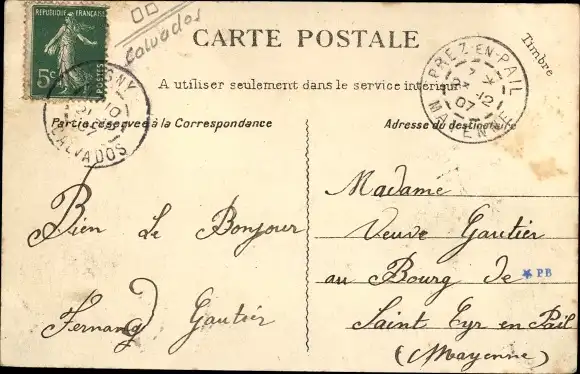 REPUBLIQUE FRANÇAISE
5c POSTES
Calvados
CARTE POSTALE
Timbre
A utiliser seulement dans le service intérieur
CALVADOS
PREZ-EN-PAIL
12
07
MAYENNE
Partie réservée à la Correspondance
Adresse du destinataire
Bien le Bonjour
Fernand Gautier
Madame
Veuve Gautier
au Bourg de
PB
Saint Cyr en Pail
(Mayenne)